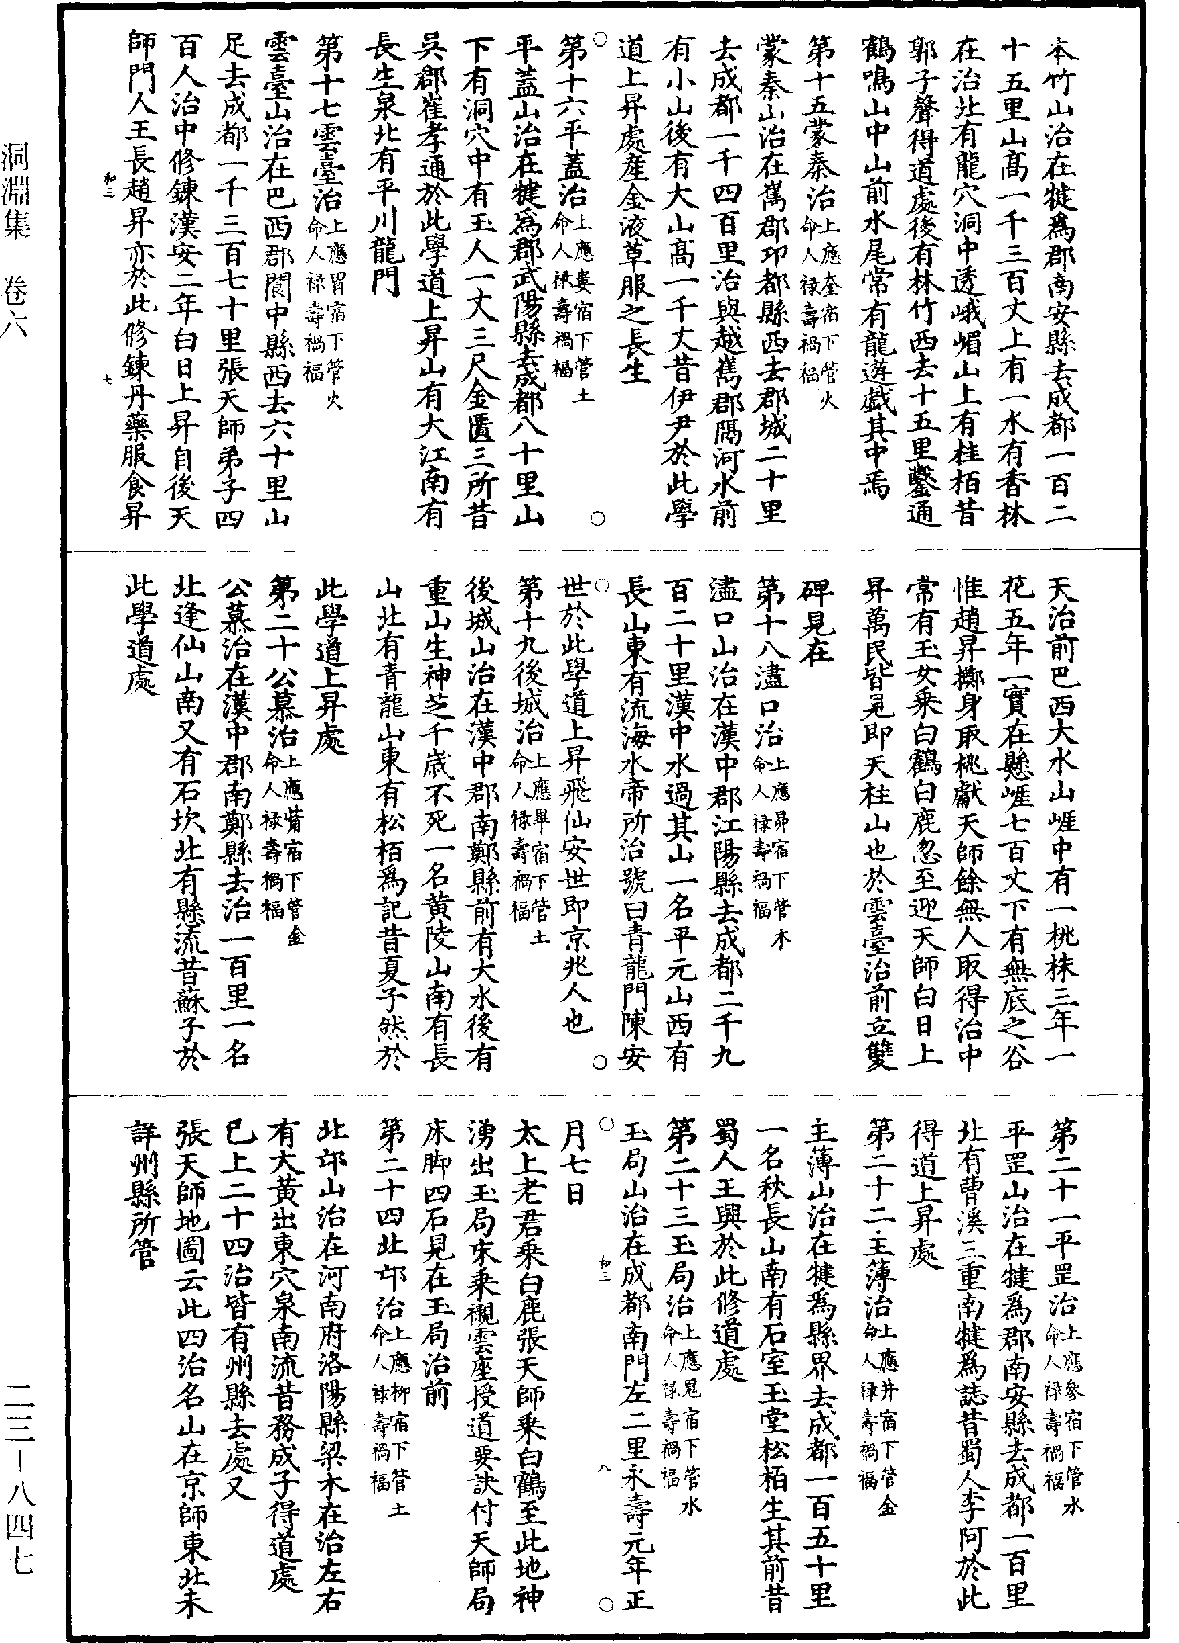 本竹山治在犍為郡南安縣去成都一百二
十五里山高一千三百丈上有一水有香林
在治北有龍穴洞中透峨嵋山上有桂栢昔
郭子聲得道處後有林竹西去十五里鑿通
鶴鳴山中山前水尾常有龍遊戲其中焉
第十五蒙秦治上應奎宿下管火命人祿壽禍福
蒙秦山治在嶲郡邛都縣西去郡城二十里
去成都一千四百里治與越嶲郡隔河水前
有小山後有大山高一千丈昔伊尹於此學
道上昇處產金液草服之長生
第十六平蓋治上應婁宿下管土命人祿壽禍福
平蓋山治在犍為郡武陽縣去成都八十里山
下有洞穴中有玉人一丈三尺金匱三所昔
吳郡崔孝通於此學道上昇山有大江南有
長生泉北有平川龍門
第十七雲臺治上應胃宿下管火命人祿壽禍福
雲臺山治在巴西郡閬中縣西去六十里山
足去成都一千三百七十里張天師弟子四
百人治中修鍊漢安二年白日上昇自後天
師門人王長趙昇亦於此修鍊丹藥服食昇
和三
七
天治前巴西大水山崕中有一桃株三年一
花五年一實在懸崕七百丈下有無底之谷
惟趙昇擲身取桃獻天師餘無人取得治中
常有玉女乘白鶴白鹿忽至迎天師白日上
昇萬民皆見即天柱山也於雲臺治前立雙
碑見在
第十八濜口治上應昴宿下管木命人祿壽禍福
濜口山治在漢中郡江陽縣去成都二千九
百二十里漢中水過其山一名平元山西有
長山東有流海水帝所治號曰青龍門陳安
世於此學道上昇飛仙安世即京兆人也
第十九後城治上應畢宿下管土命人祿壽禍福
後城山治在漢中郡南鄭縣前有大水後有
重山生神芝千歲不死一名黃陵山南有長
山北有青龍山東有松栢為記昔夏子然於
此學道上昇處
第二十公慕治上應觜宿下管金命人祿壽禍福
公慕治在漢中郡南鄭縣去治一百里一名
北逢仙山南又有石坎北有縣流昔蘇子於
此學道處
第二十一平罡治上應參宿下管水命人祿壽禍福
平罡山治在犍為郡南安縣去成都一百里
北有曹溪三重南犍為誌昔蜀人李阿於此
得道上昇處
第二十二主薄治上應井宿下管金命人祿壽禍福
主薄山治在犍為縣界去成都一百五十里
一名秋長山南有石室玉堂松栢生其前昔
蜀人王興於此修道處
第二十三玉局治上應鬼宿下管水命人祿壽禍福
玉局山治在成都南門左二里永壽元年正
和三
八
月七日
太上老君乘白鹿張天師乘白鶴至此地神
湧出玉局床乘襯雲座授道要訣付天師局
床脚四石見在玉局治前
第二十四北邙治上應柳宿下管土命人祿壽禍福
北邙山治在河南府洛陽縣梁木在治左右
有大黃出東穴泉南流昔務成子得道處
已上二十四治皆有州縣去處又
張天師地圖云此四治名山在京師東北未
詳州縣所管
洞淵集　卷六
二三—八四七